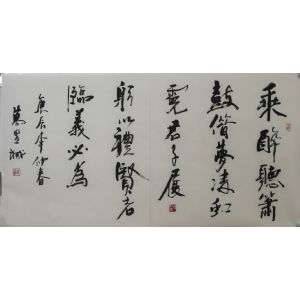 乘醉聽簫
鼓 夢凌虹
霓君子履
躬以禮賢者
臨義必為
庚辰年仲春
萬里城